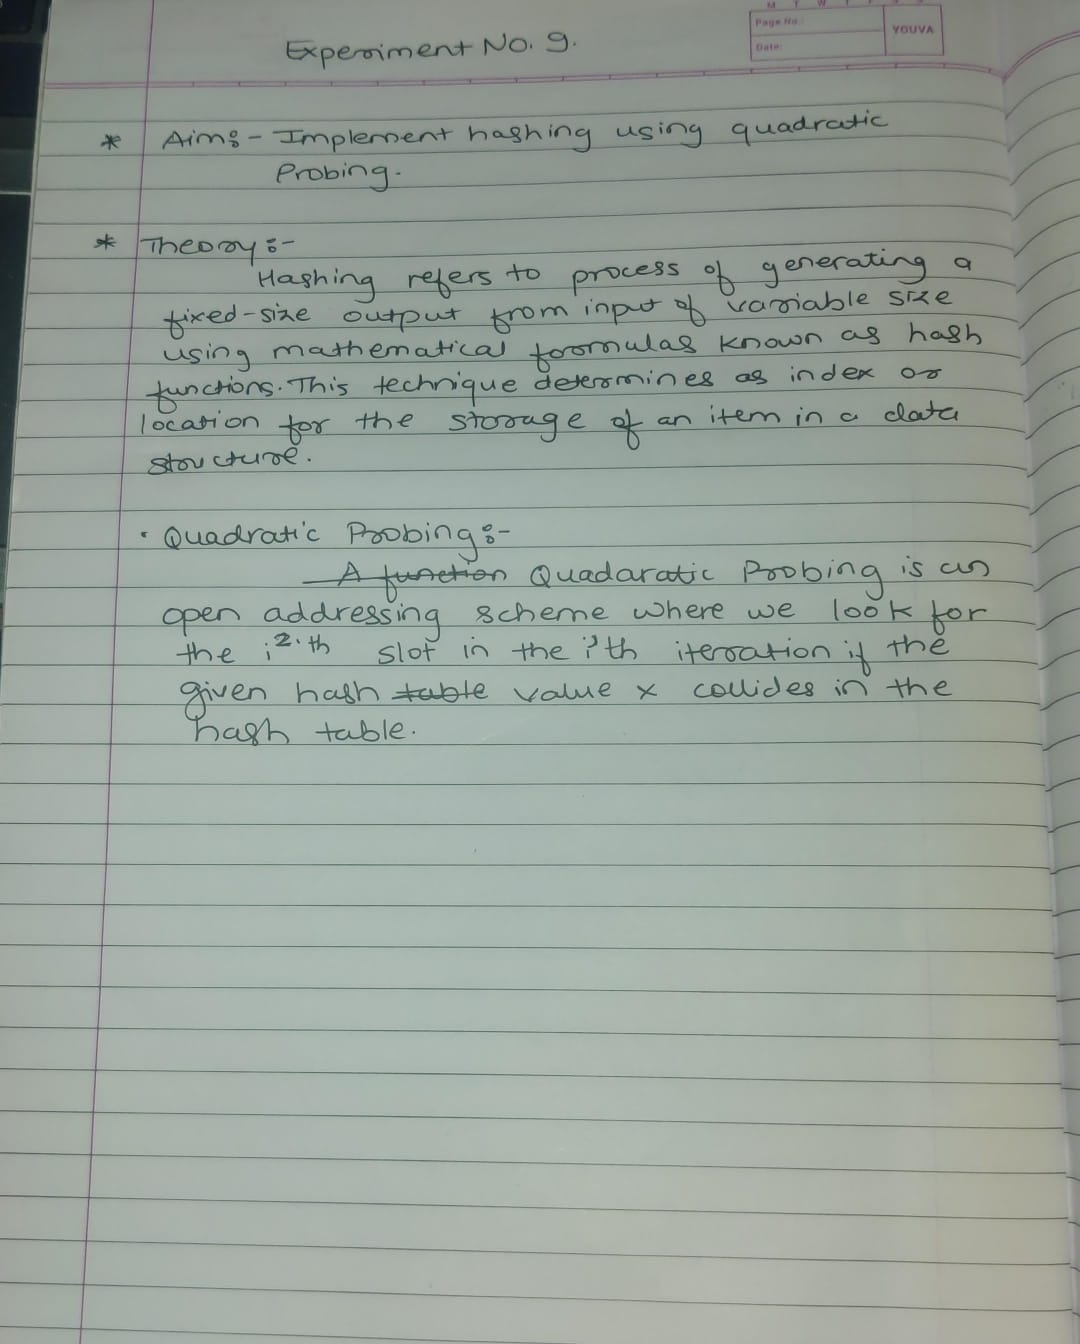 M T W T F S S
Page No.:
YOUVA
Date:
Experiment No. 9.
* Aim:- Implement hashing using quadratic
Probing.
* Theory:-
Hashing refers to process of generating a
fixed-size output from input of variable size
using mathematical formulas known as hash
functions. This technique determines as index or
location for the storage of an item in a data
structure.
• Quadratic Probing:-
A function Quadaratic Probing is an
open addressing scheme where we look for
the i².th slot in the i'th iteration if the
given hash table value x collides in the
hash table.